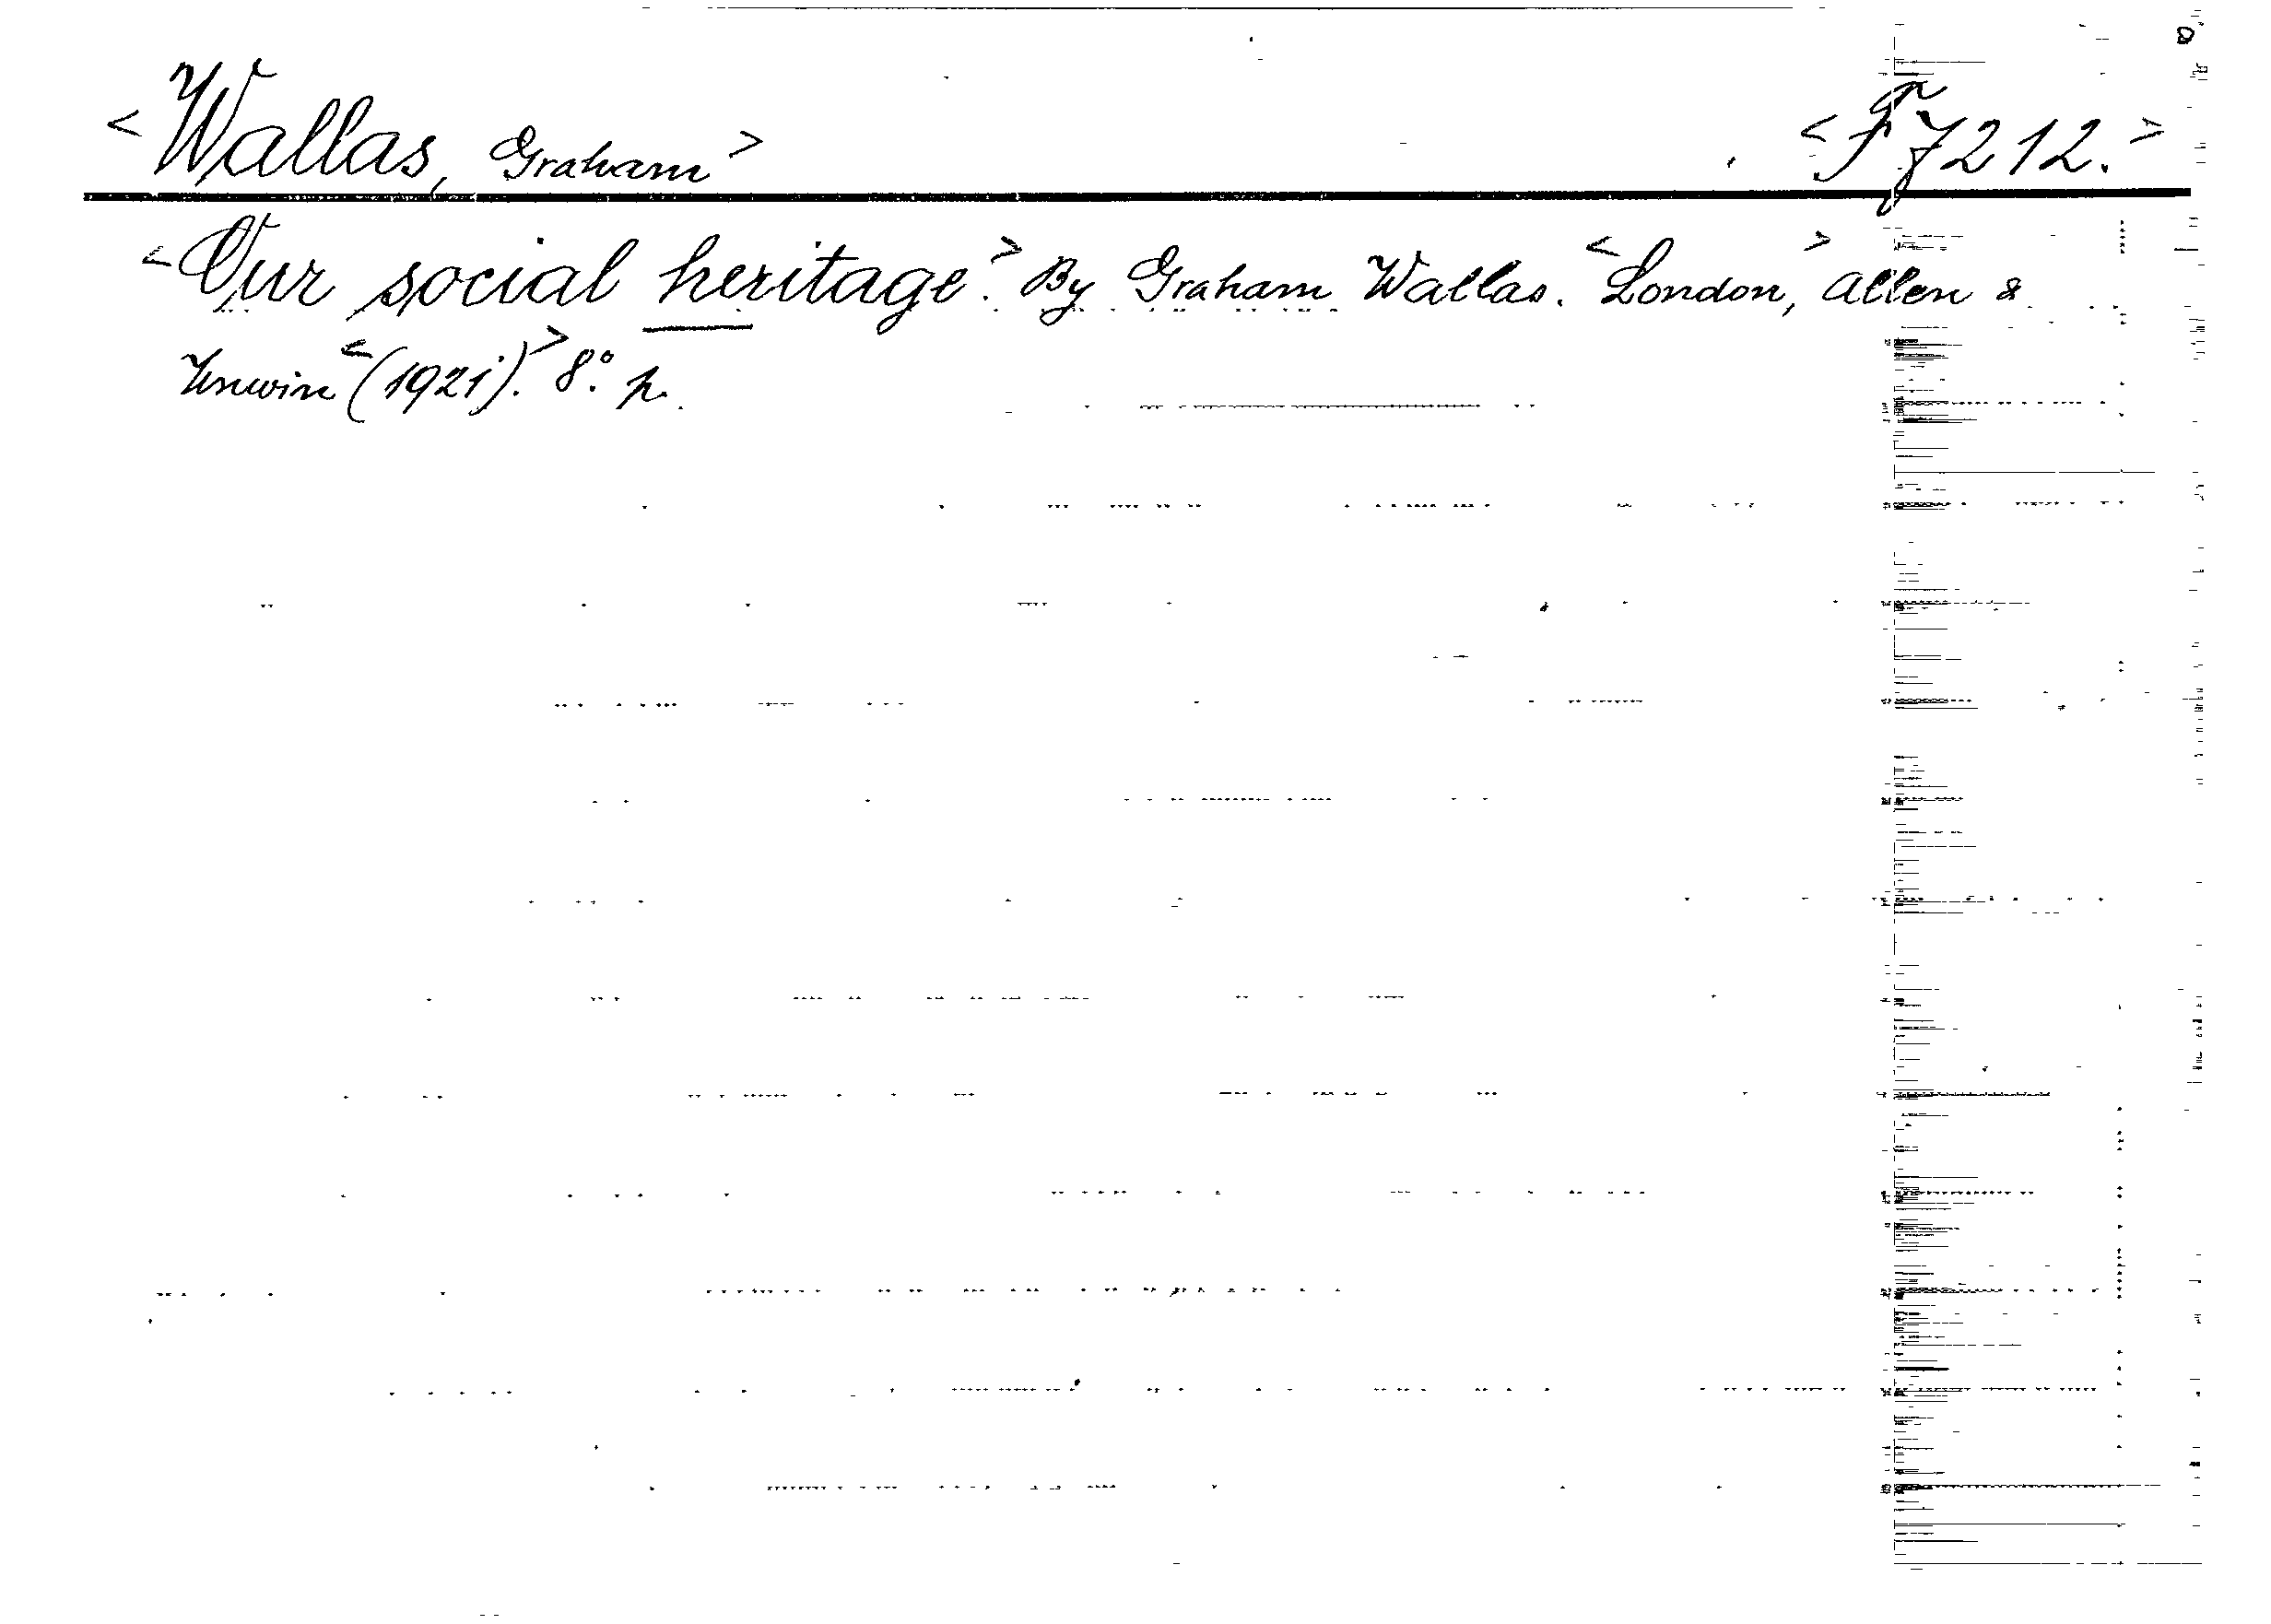 <Wallas, Graham> <F7212.>
<Our social heritage.> By Graham Wallas. <London,> Allen &
Unwin <(1921).> 8°. p.